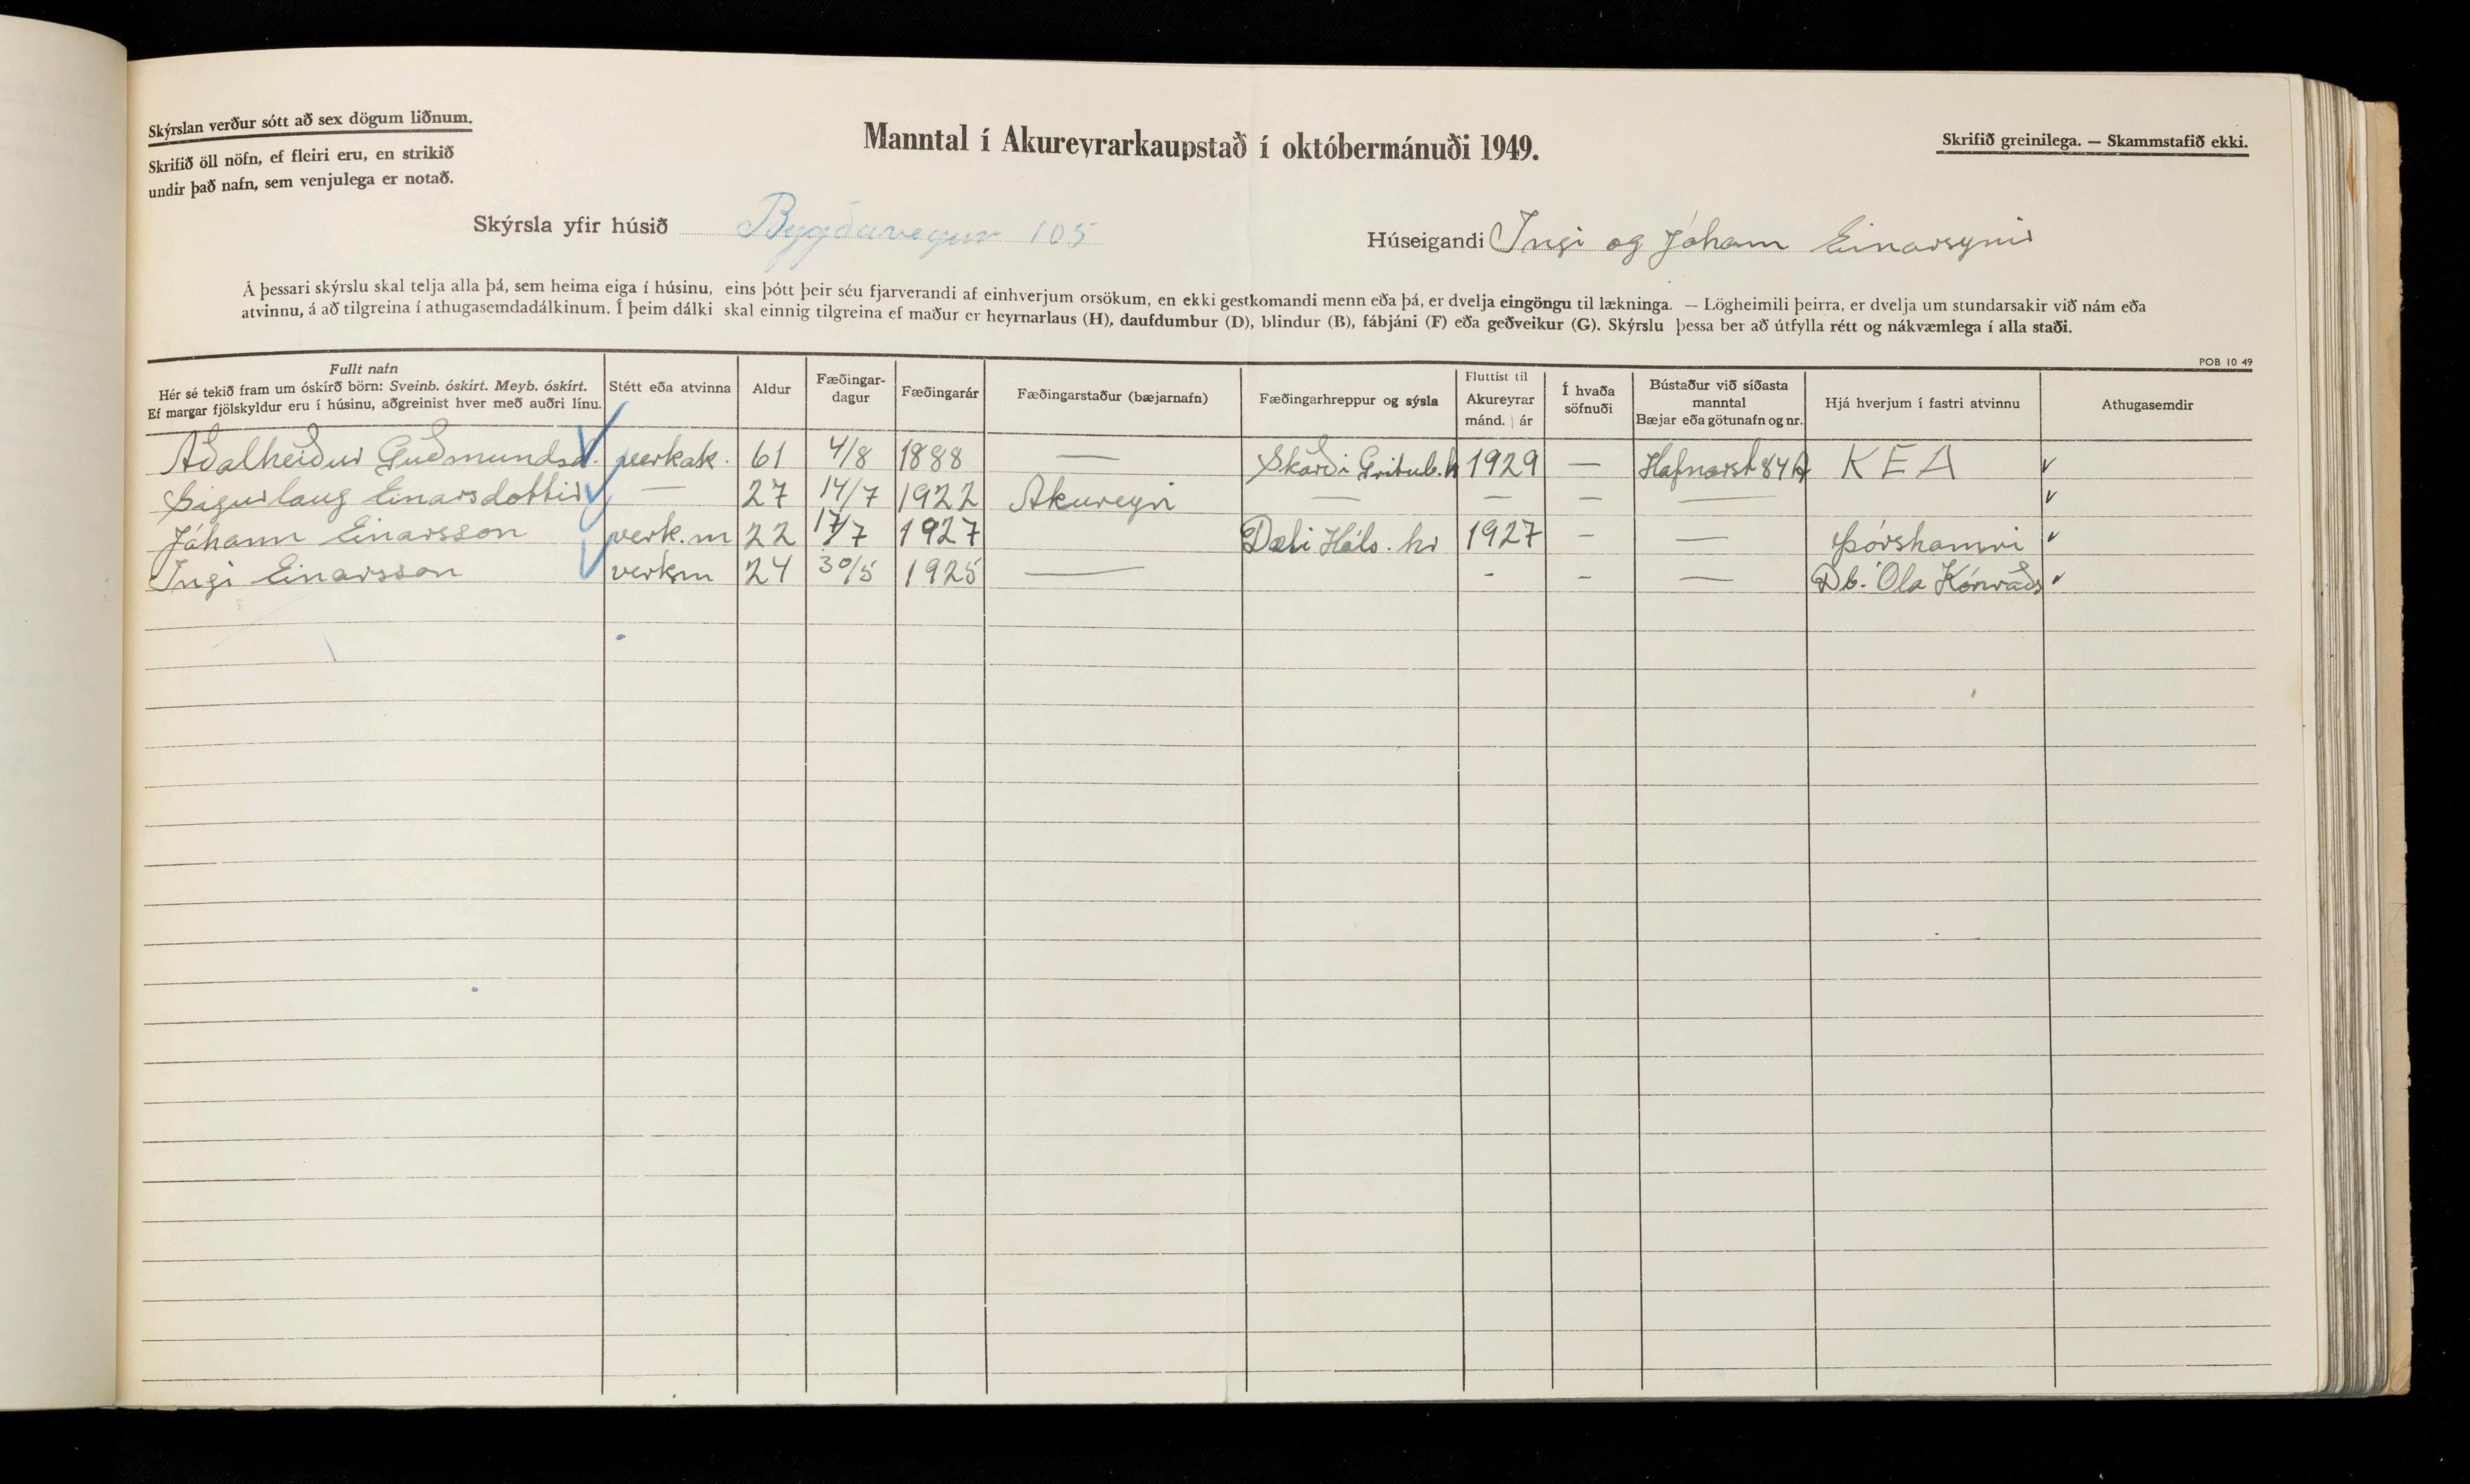 Skýrslan verður sótt að sex dögum liðnum.
Skrifið öll nöfn, ef fleiri eru, en strikið
undir það nafn, sem venjulega er notað.
Manntal í Akureyrarkaupstað í októbermánuði 1949.
Skrifið greinilega. — Skammstafið ekki.
Skýrsla yfir húsið Byggðavegur 105
Húseigandi Ingi og Jóhann Einarsynir
Á þessari skýrslu skal telja alla þá, sem heima eiga í húsinu, eins þótt þeir séu fjarverandi af einhverjum orsökum, en ekki gestkomandi menn eða þá, er dvelja eingöngu til lækninga. — Lögheimili þeirra, er dvelja um stundarsakir við nám eða
atvinnu, á að tilgreina í athugasemdadálkinum. Í þeim dálki skal einnig tilgreina ef maður er heyrnarlaus (H), daufdumbur (D), blindur (B), fábjáni (F) eða geðveikur (G). Skýrslu þessa ber að útfylla rétt og nákvæmlega í alla staði.
POB 10 49
Fullt nafn
Hér sé tekið fram um óskírð börn: Sveinb. óskírt. Meyb. óskírt.
Ef margar fjölskyldur eru í húsinu, aðgreinist hver með auðri línu.
Stétt eða atvinna
Aldur
Fæðingar-
dagur
Fæðingarár
Fæðingarstaður (bæjarnafn)
Fæðingarhreppur og sýsla
Fluttist til
Akureyrar
mánd. | ár
Í hvaða
söfnuði
Bústaður við síðasta
manntal
Bæjar eða götunafn og nr.
Hjá hverjum í fastri atvinnu
Athugasemdir
Aðalheiður Guðmundsd. verkak. 61 4/8 1888 — Skarði Gritub.h 1929 — Hafnarst 84A KEA ✓
Sigurlaug Einarsdottir — 27 14/7 1922 Akureyri — — — — ✓
Jóhann Einarsson verk.m 22 17/7 1927 Dæli Háls. hr 1927 — — Þórshamri ✓
Ingi Einarsson verkm 24 30/5 1925 — - - — Db. Óla Konráðs ✓